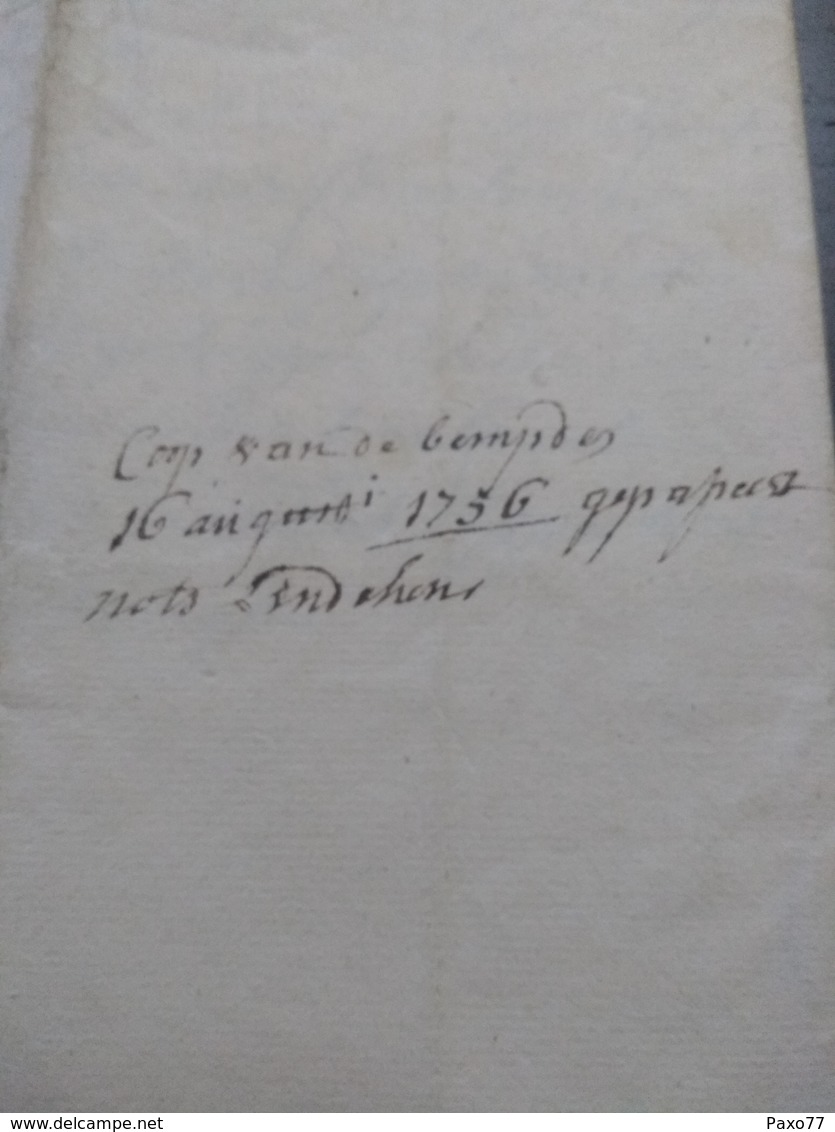 Coop van de bempden
16 augusti 1756 gepasseert
nots Lindekens
www.delcampe.net
Paxo77